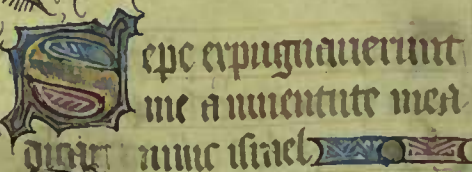 Sepe expugnauerunt
me a iuuentute mea
dicat nunc israel